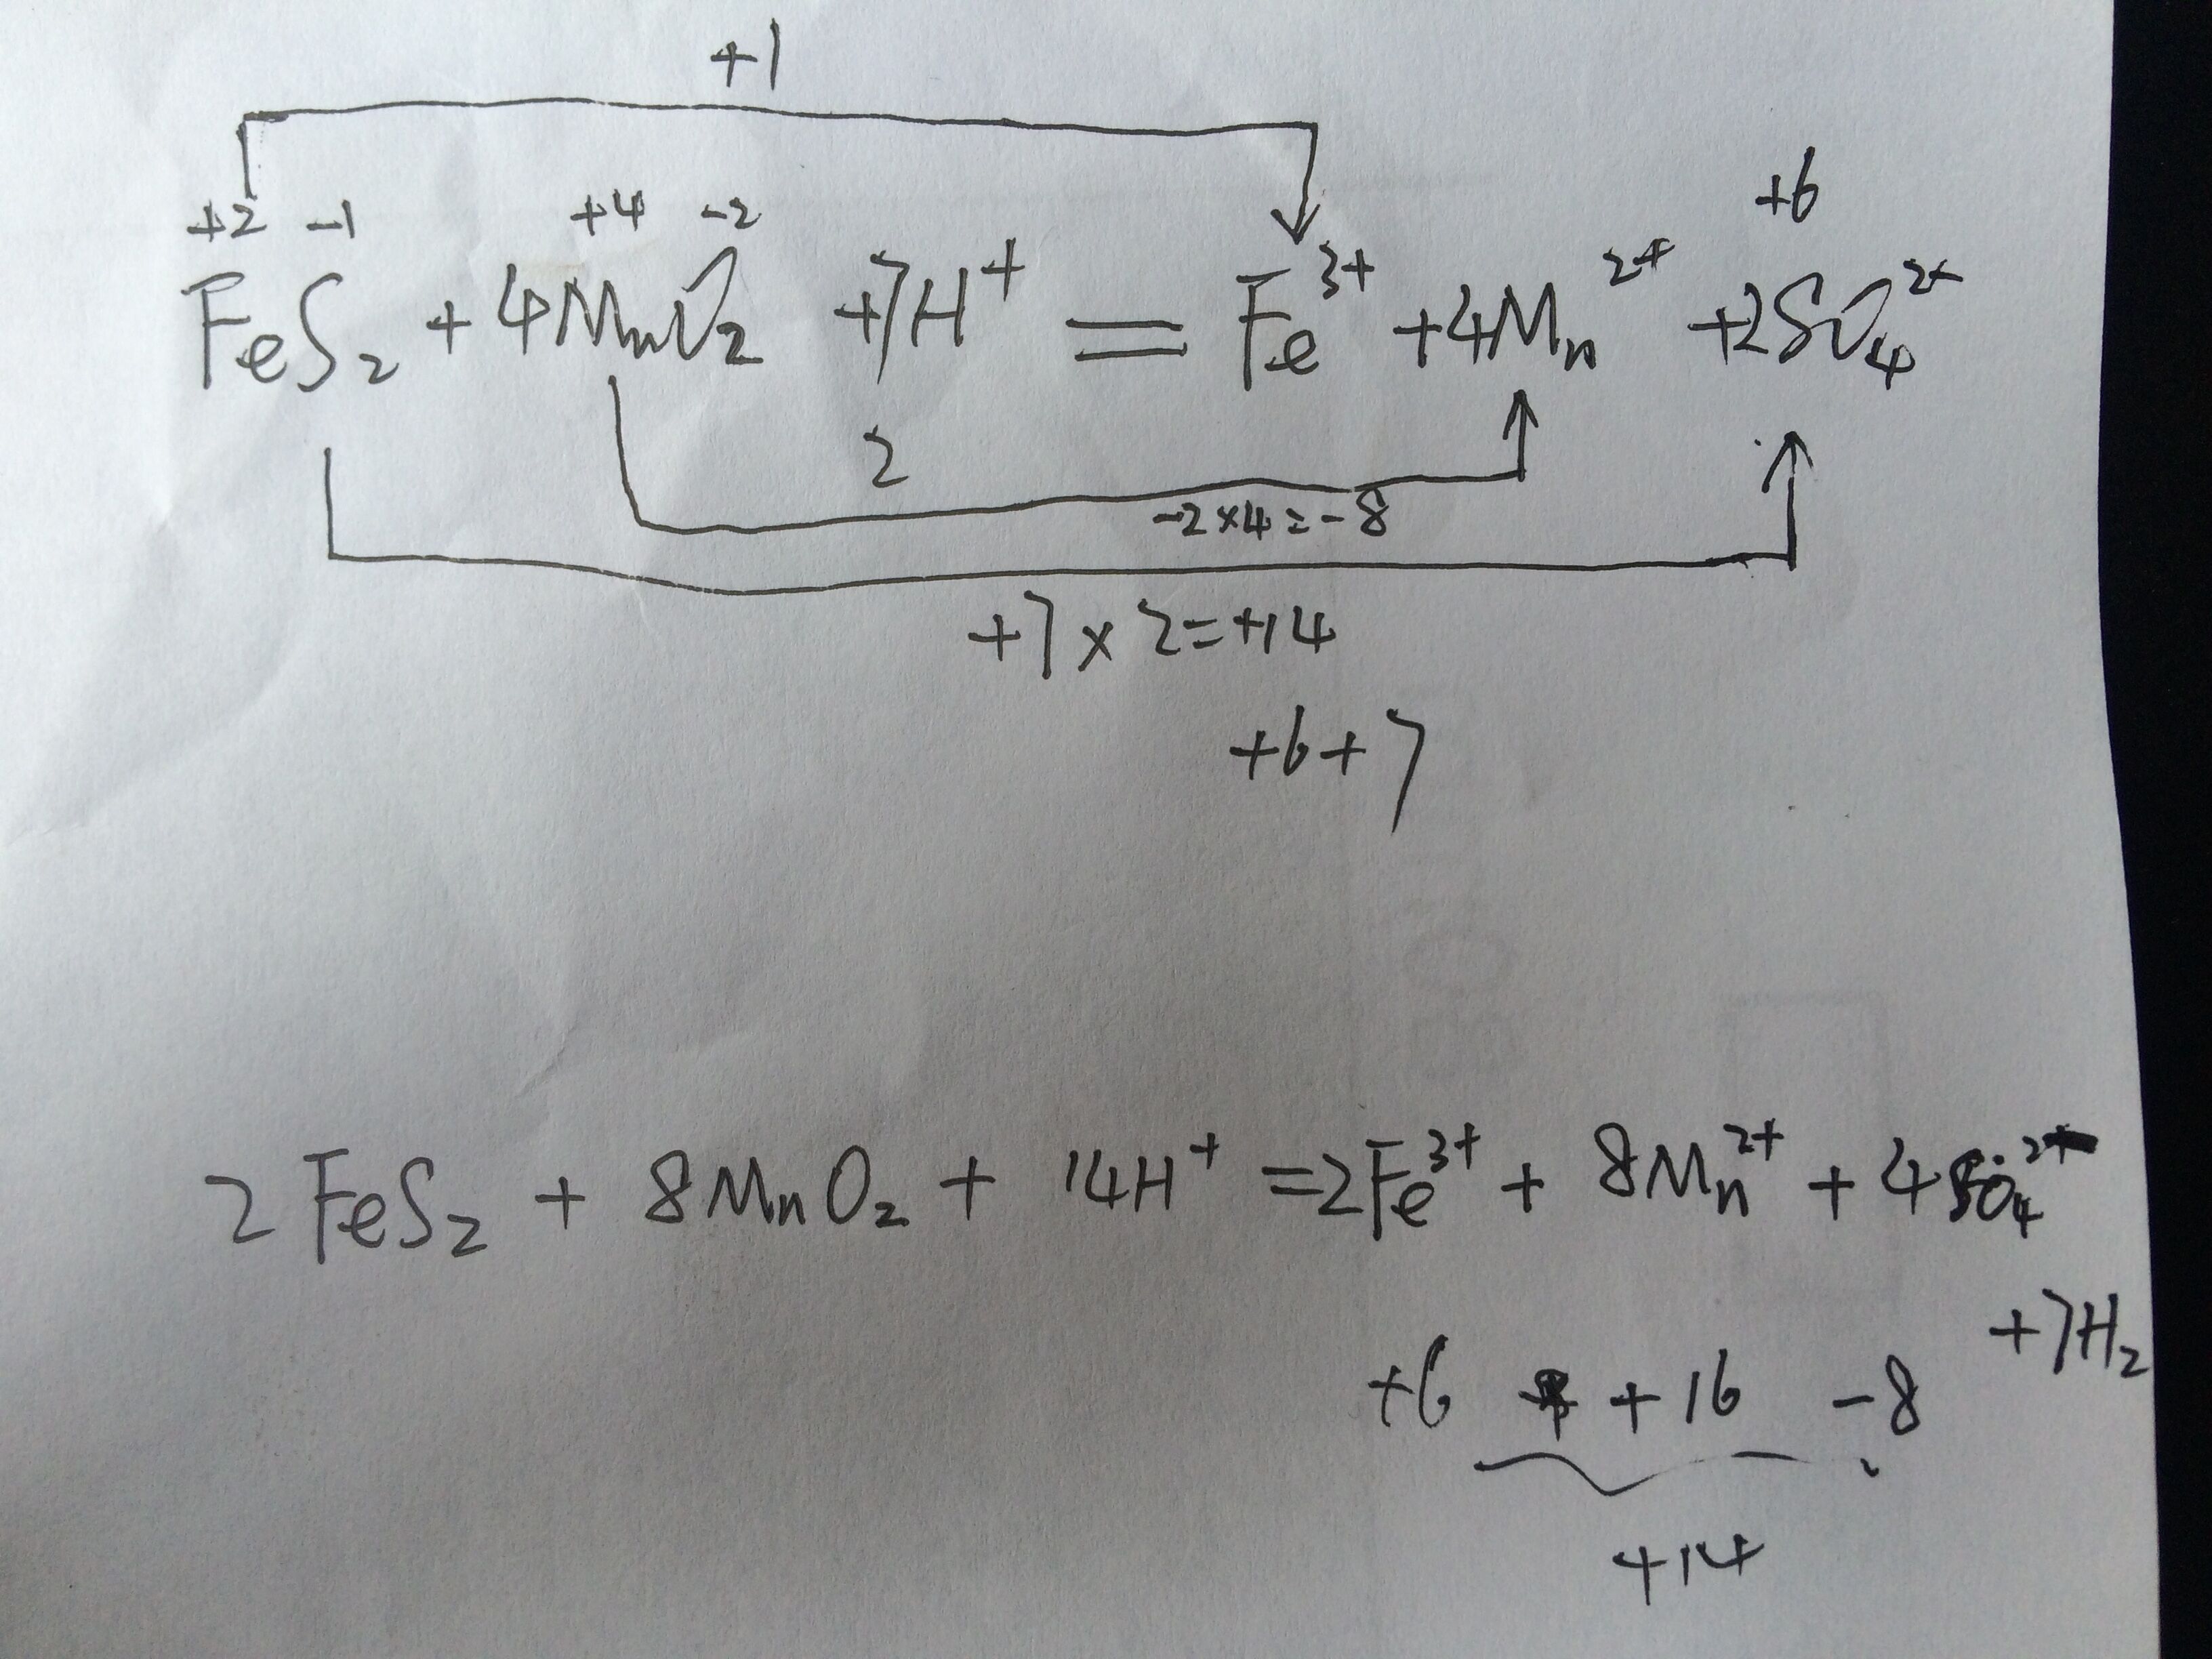 +1
+2 -1 +4 -2 +6
FeS₂ + 4MnO₂ +7H⁺ = Fe³⁺ +4Mn²⁺ +2SO₄²⁺
2
-2×4=-8
+7×2=+14
+6+7
2FeS₂ + 8MnO₂ + 14H⁺ =2Fe³⁺ + 8Mn²⁺ + 4SO₄²⁻
+7H₂
+6 +16 -8
+14